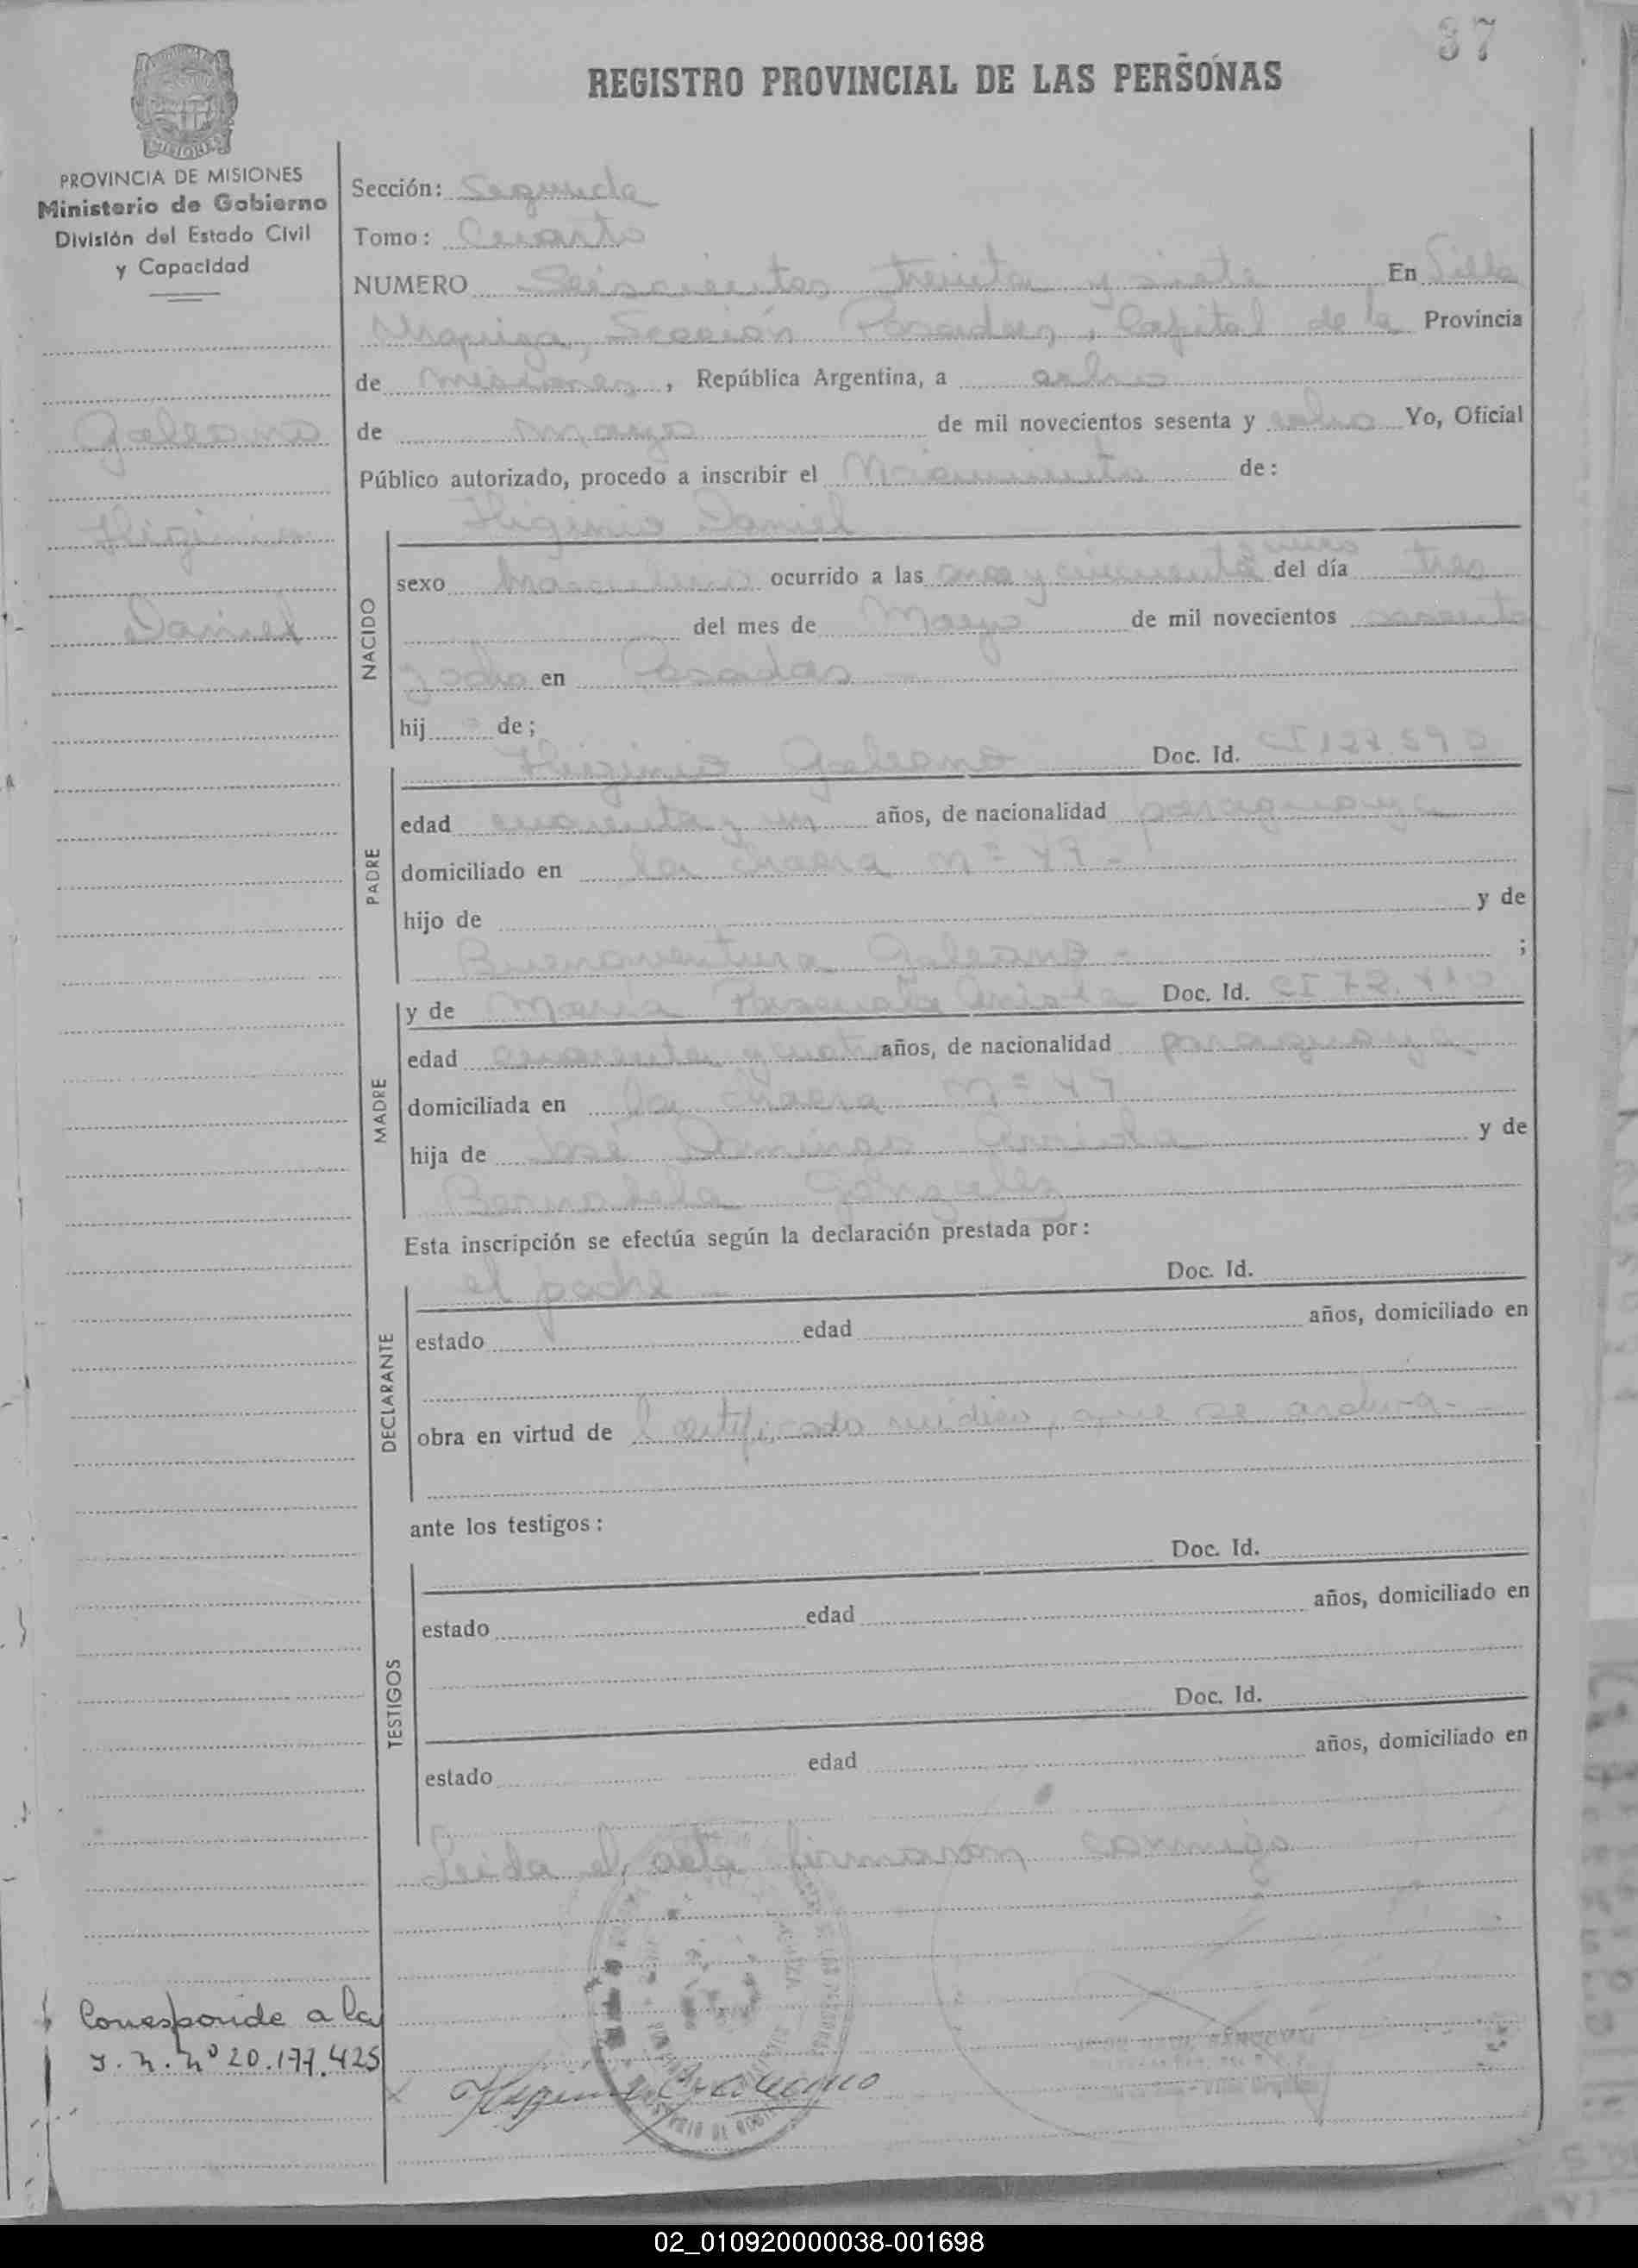 37
REGISTRO PROVINCIAL DE LAS PERSONAS
MISIONES
PROVINCIA DE MISIONES
Ministerio de Gobierno
División del Estado Civil
y Capacidad
Galeano
Higinio
Daniel
Sección: Segunda
Tomo: Cuarto
NUMERO Seiscientos treinta y siete En Villa
Urquiza, Sección Posadas, Capital de la Provincia
de Misiones, República Argentina, a ocho
de mayo de mil novecientos sesenta y ocho Yo, Oficial
Público autorizado, procedo a inscribir el Nacimiento de:
NACIDO
Higinio Daniel
sexo masculino ocurrido a las once y cincuenta del día tres
del mes de Mayo de mil novecientos sesenta
y ocho en Posadas
hijo de;
PADRE
Higinio Galeano Doc. Id.
edad cuarenta y un años, de nacionalidad paraguaya
domiciliado en la chacra
hijo de y de
Buenaventura Galeano - ;
MADRE
y de María Doc. Id.
edad cuarenta y años, de nacionalidad paraguaya
domiciliada en la chacra
hija de José y de
Bernabela González
Esta inscripción se efectúa según la declaración prestada por:
DECLARANTE
el padre - Doc. Id.
estado edad años, domiciliado en
obra en virtud de Certificado médico, que se archiva -
ante los testigos:
TESTIGOS
Doc. Id.
estado edad años, domiciliado en
Doc. Id.
estado edad años, domiciliado en
Leida el acta firmaron conmigo
Corresponde a la
Y. N. Nº 20.177.425
Higinio Galeano
02_010920000038-001698